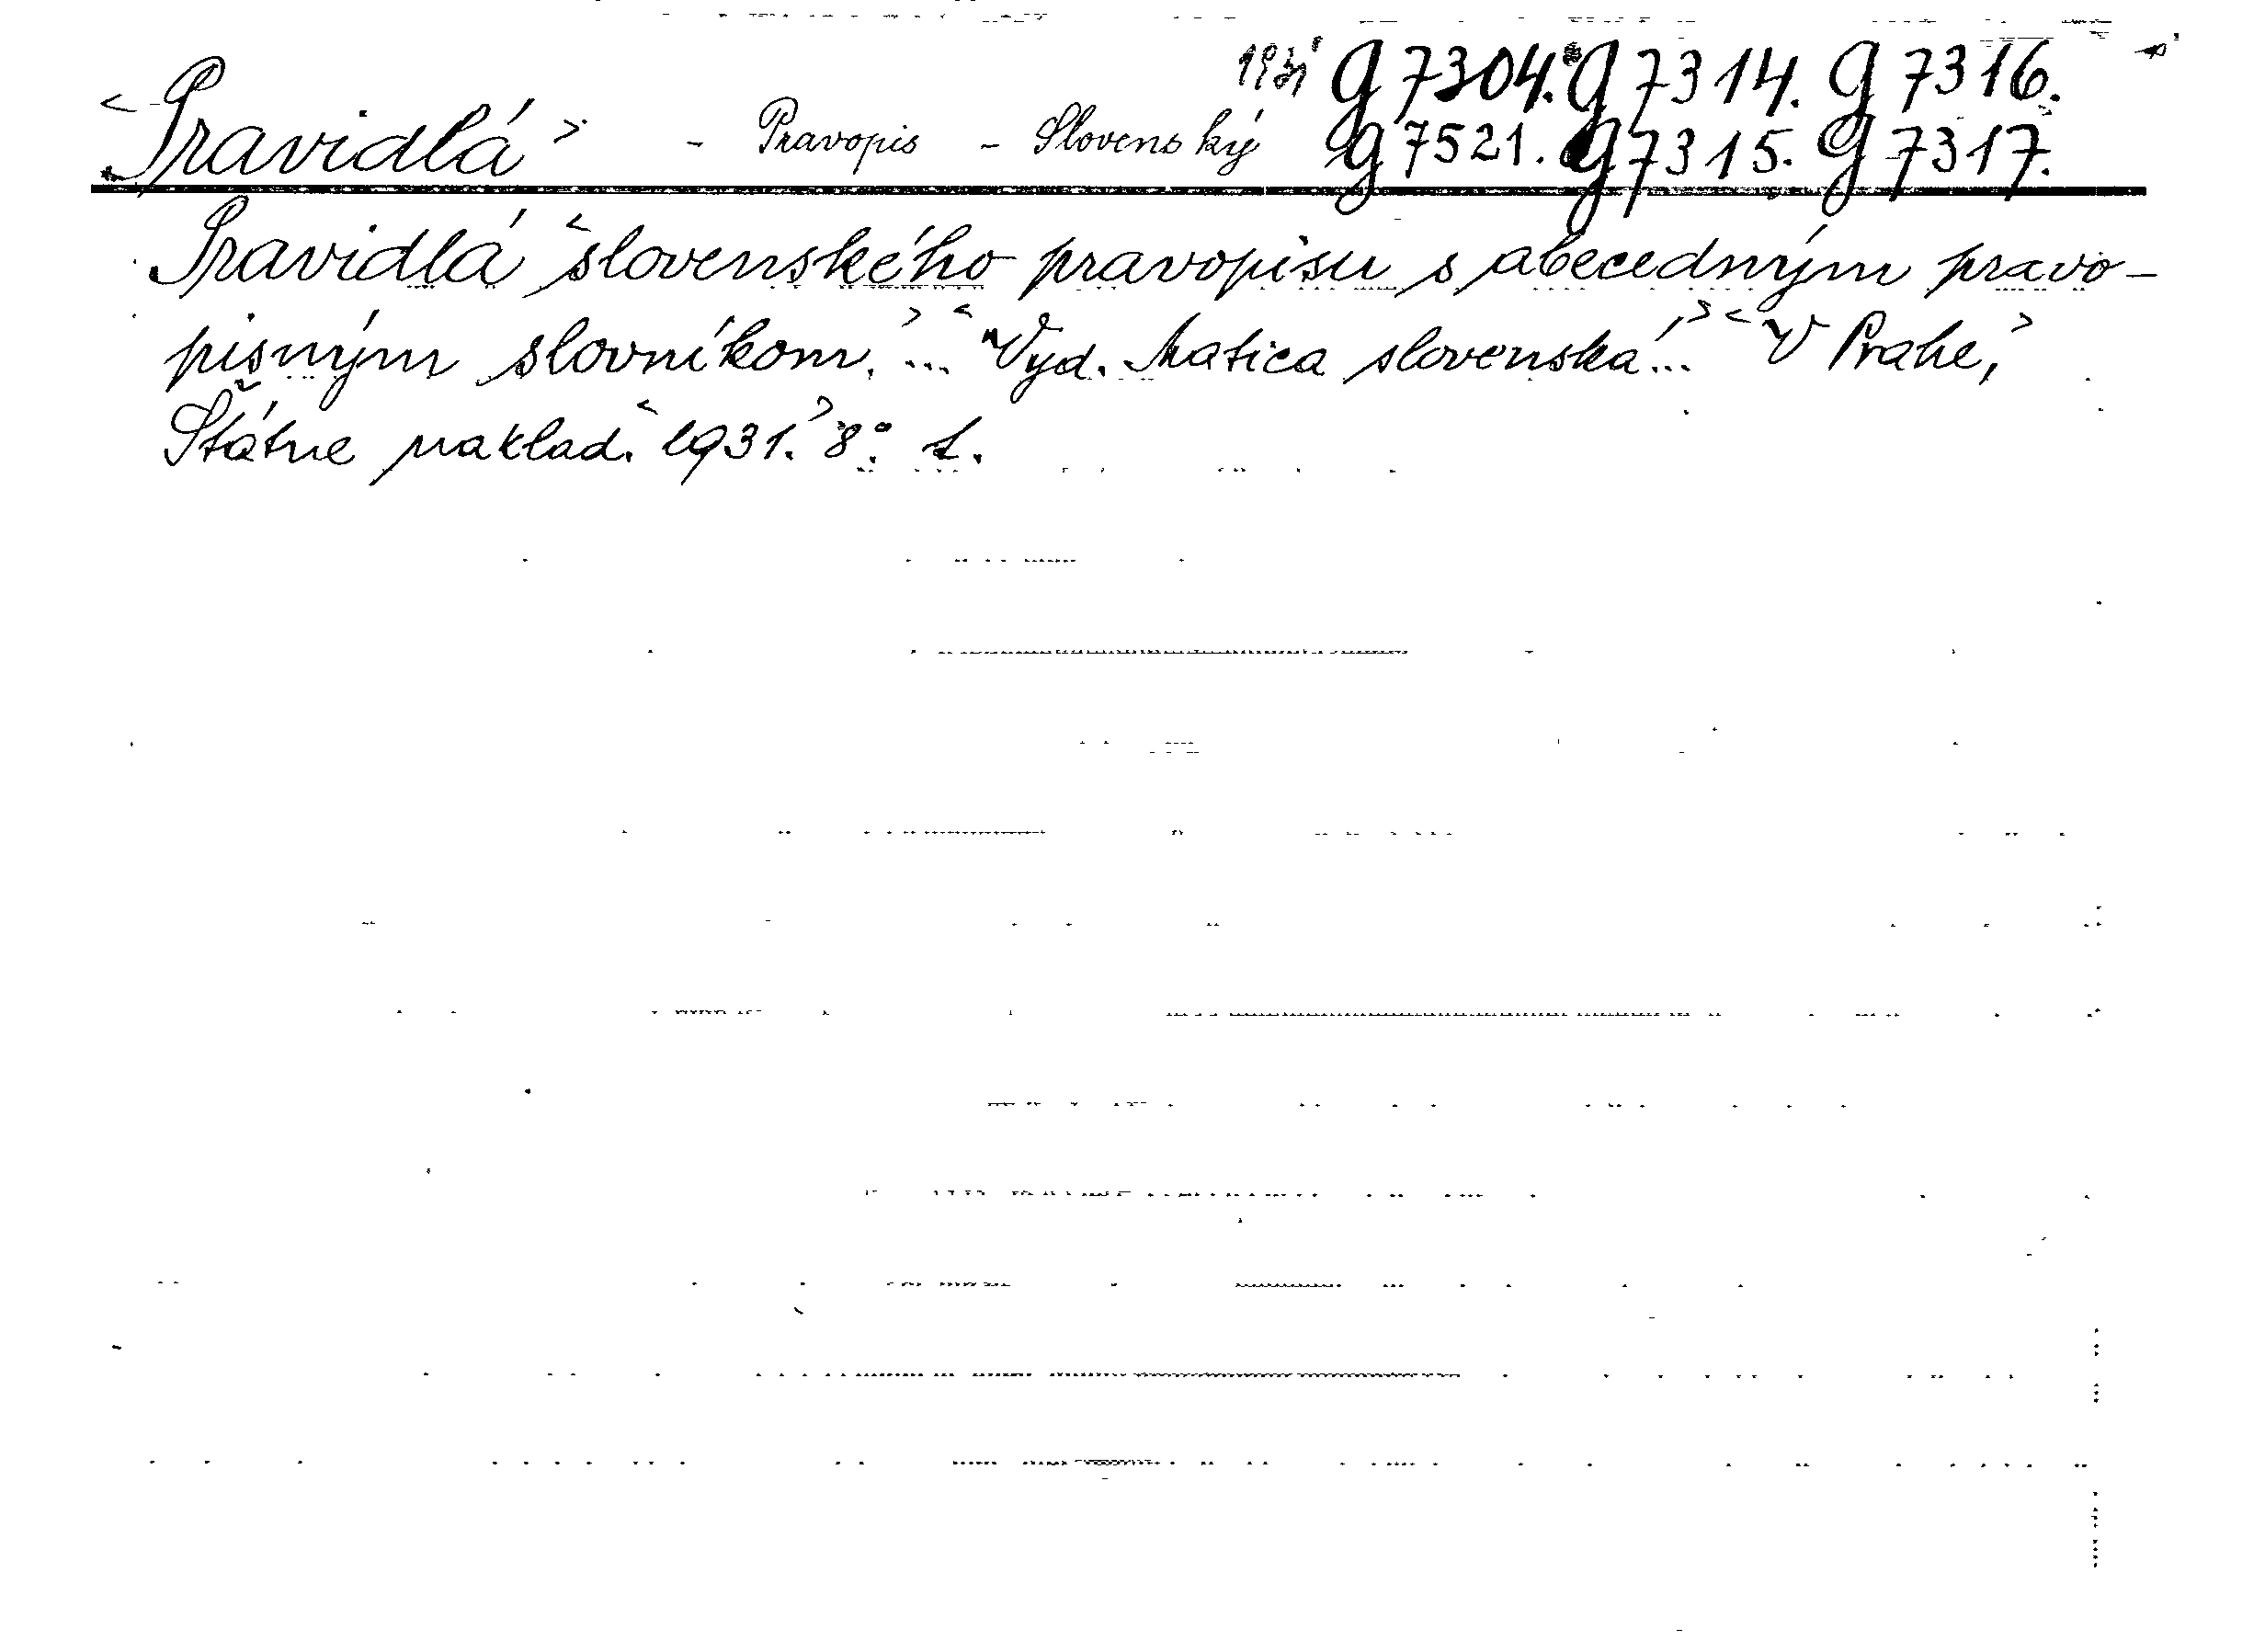 <Pravidlá> - Pravopis - Slovenský 1931 G 7304. G 7314. G 7316.
G 7521. G 7315. G 7317.
Pravidlá <slovenského pravopisu s abecedným pravo-
pisným slovníkom.> ... <Vyd. Matica slovenská> ... <V Prahe,>
Štátne naklad. <1931.> 8°. L.